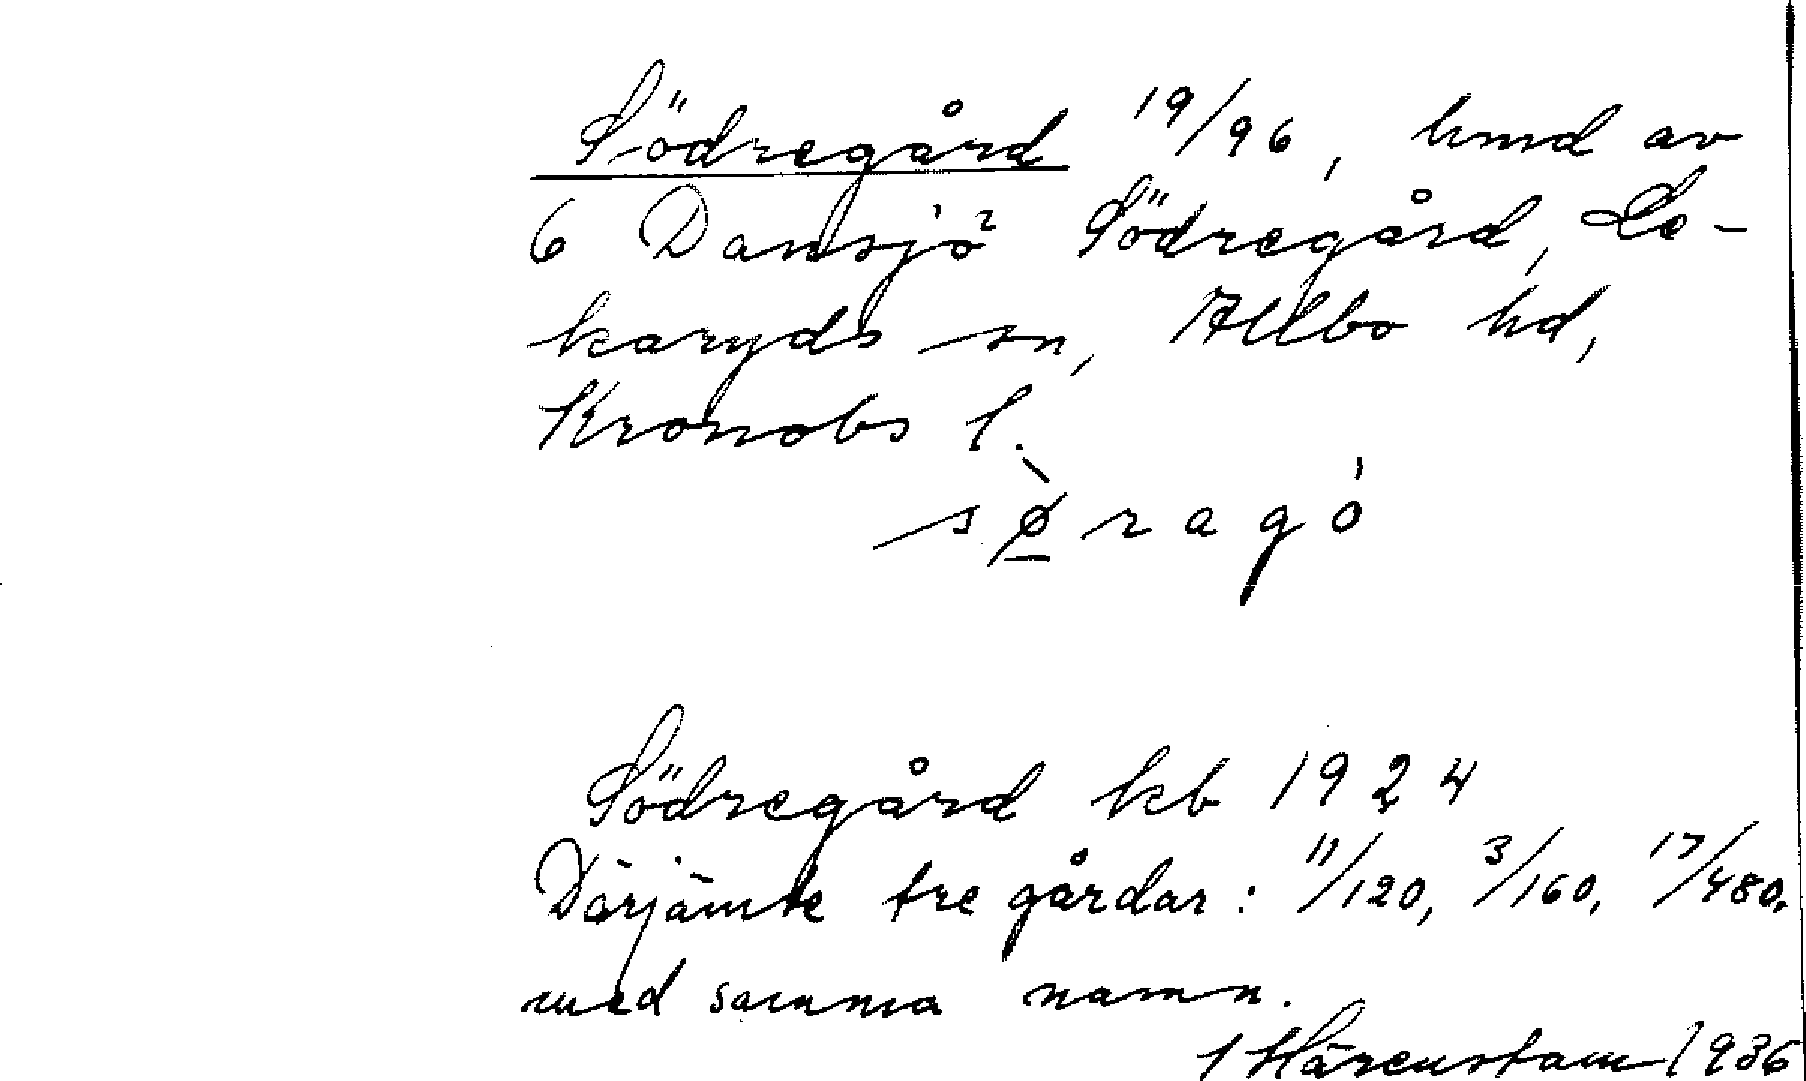 Södregård 19/96, hmd av
6 Dansjö Södregård, Le-
karyds sn, Allbo hd,
Kronobs l.
sø̱̀ragó
Södregård kb 1924
Därjämte tre gårdar: 11/120, 3/160, 17/480,
med samma namn.
I Härenstam 1936